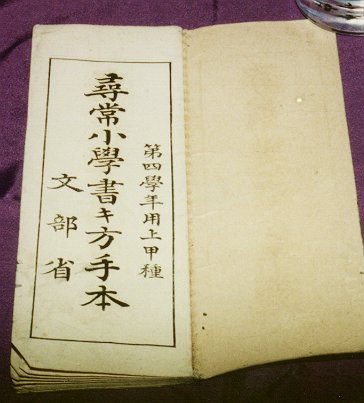 第四學年用上甲種
尋常小學書キ方手本
文部省